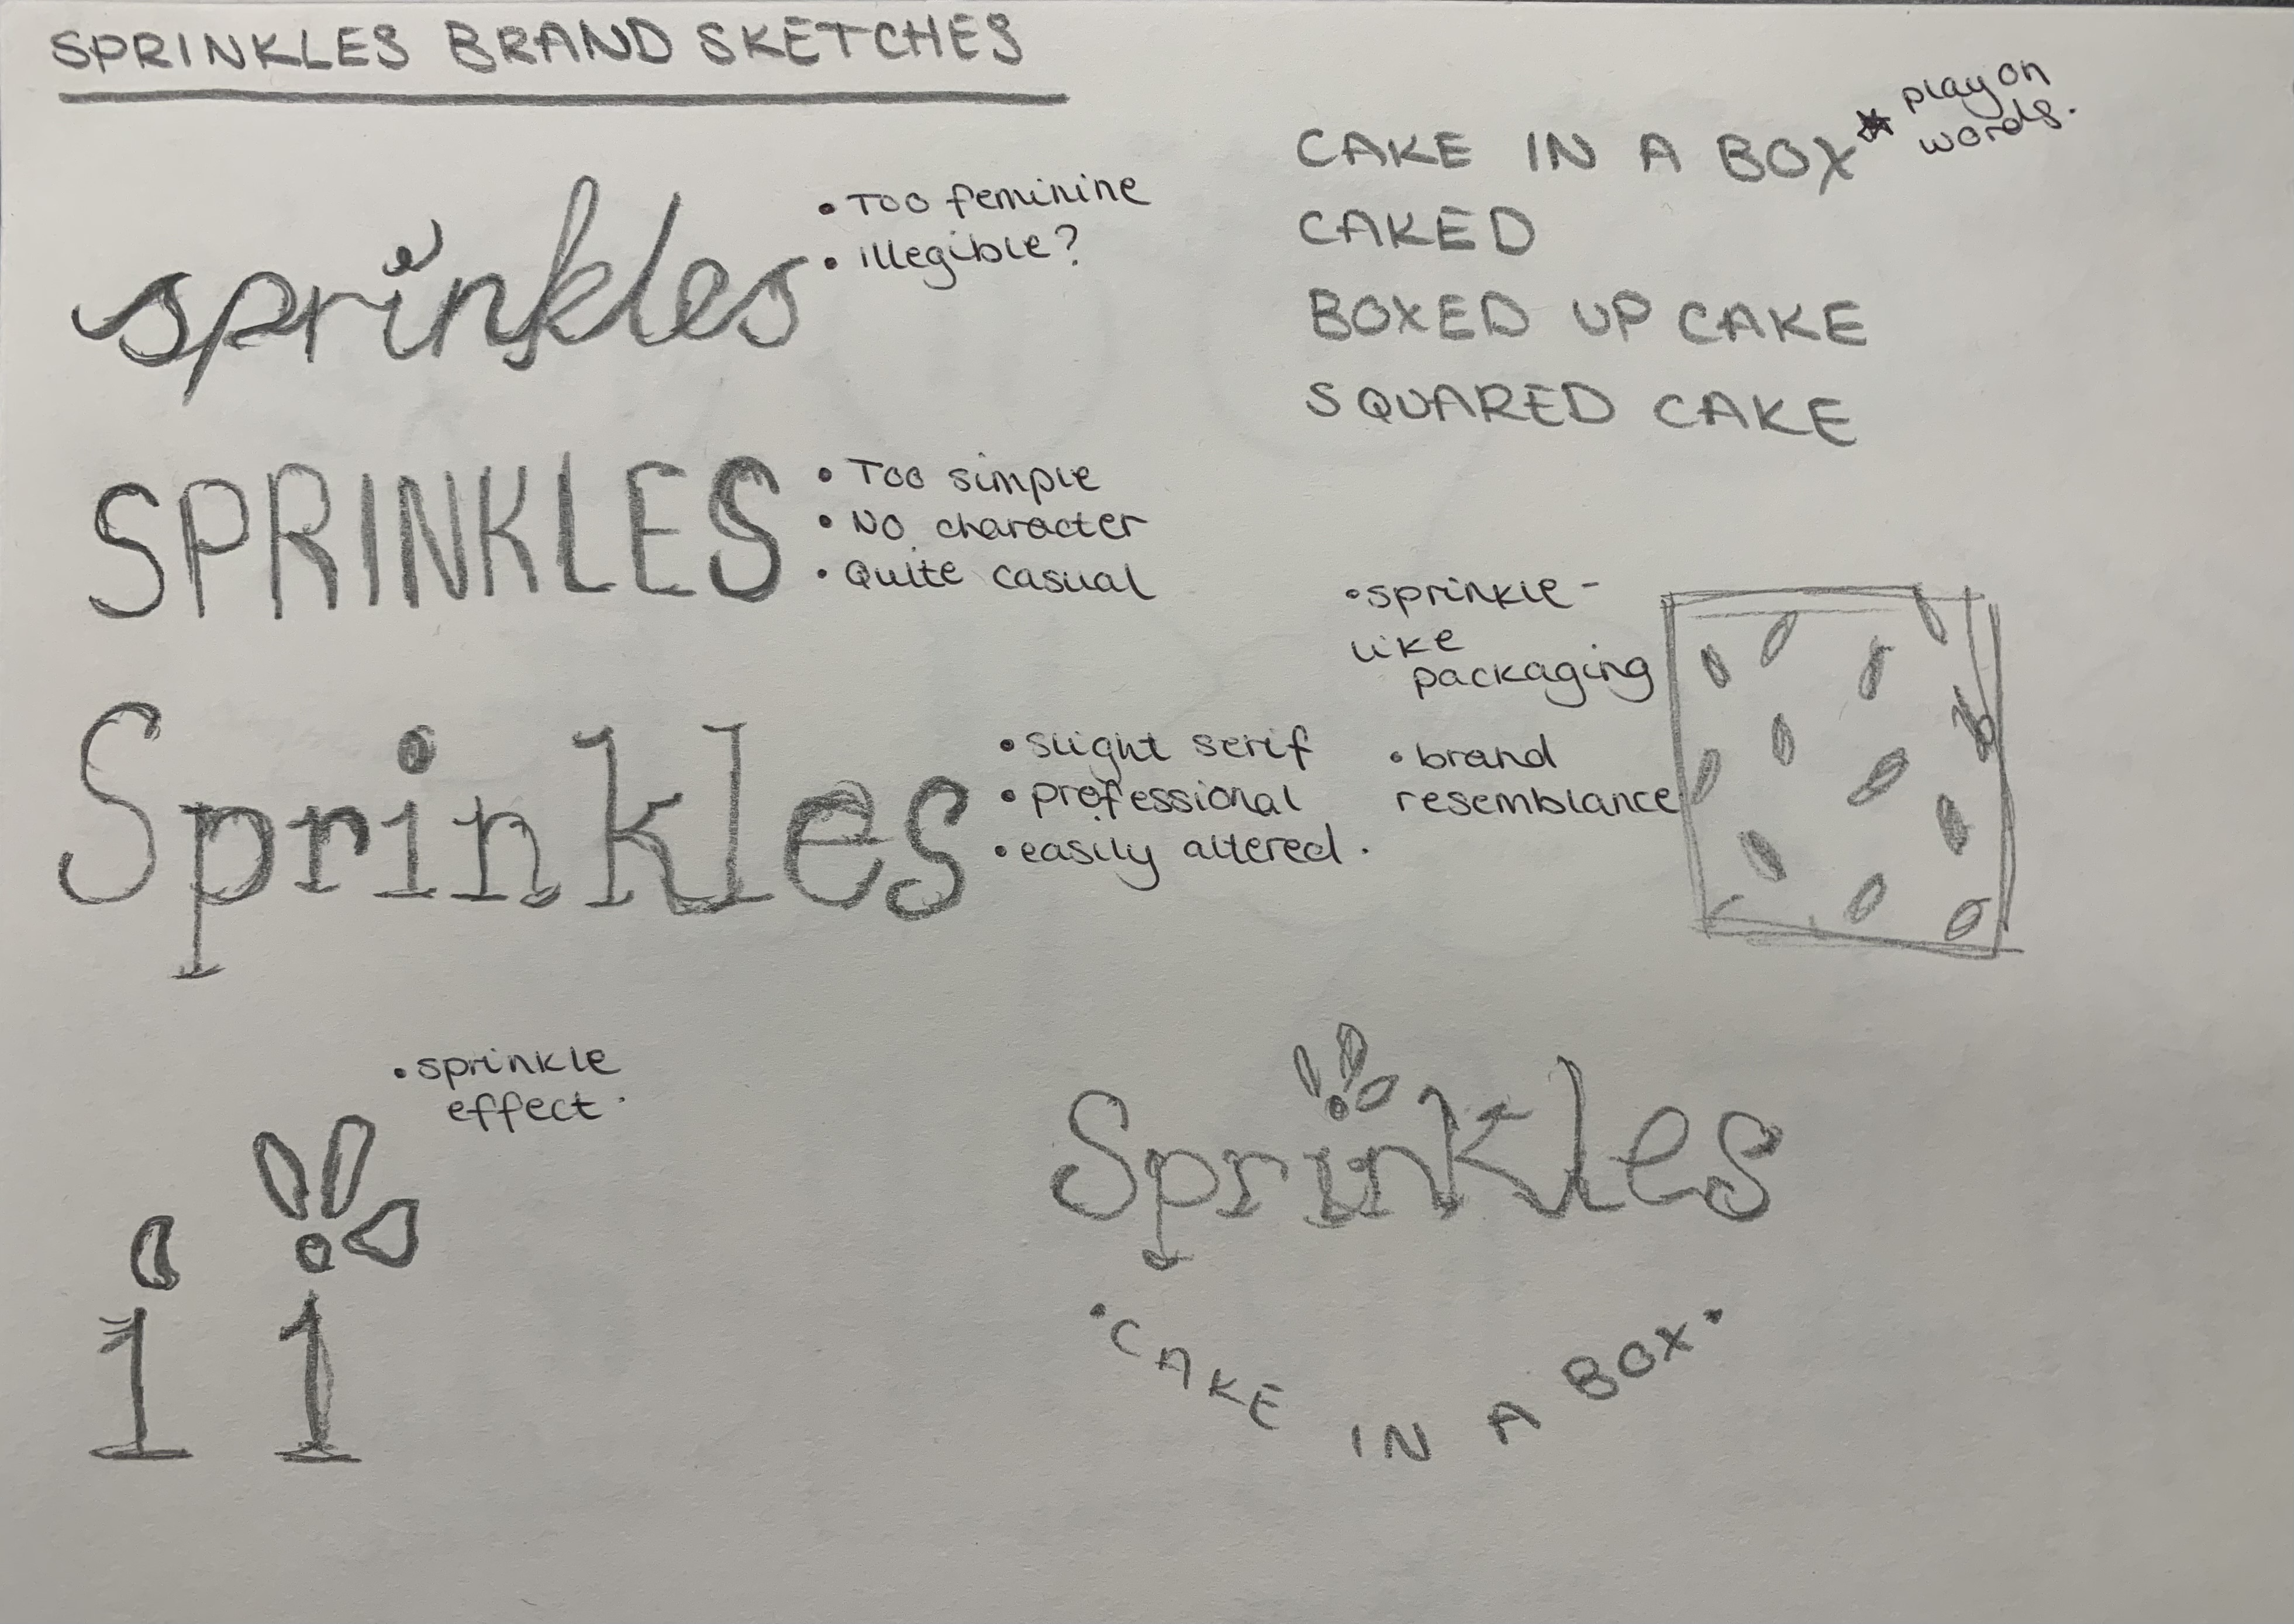 SPRINKLES BRAND SKETCHES
sprinkles
• Too feminine
• illegible?
CAKE IN A BOX* play on
words.
CAKED
BOXED UP CAKE
SQUARED CAKE
SPRINKLES
• Too simple
• No character
• Quite casual
Sprinkles
• slight serif
• professional
• easily altered.
• sprinkle-
like
packaging
• brand
resemblance
• sprinkle
effect.
i i
Sprinkles
• CAKE IN A BOX •